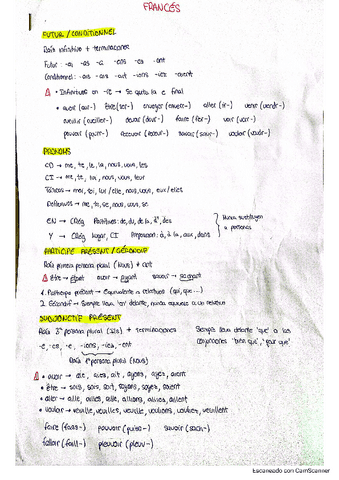 FRANCÉS
FUTUR / CONDITIONNEL
Raíz infinitivo + terminaciones
Futur: -ai -as -a -ons -ez -ont
Conditionnel: -ais -ais -ait -ions -iez -aient
• Infinitivos en -re → se quita la e final
• avoir (aur-) être (ser-) envoyer (enverr-) aller (ir-) venir (viendr-)
cueillir (cueiller-) devoir (devr-) faire (fer-) voir (verr-)
pouvoir (pourr-) recevoir (recevr-) savoir (saur-) vouloir (voudr-)
PRONOMS
CD → me, te, le, la, nous, vous, les
CI → me, te, lui, nous, vous, leur
Tónicos → moi, toi, lui / elle, nous, vous, eux / elles
Reflexivos → me, te, se, nous, vous, se
EN → CReg Partitivos: de, du, de la, des
Nunca sustituyen a personas
Y → CReg lugar, CI Preposición: à, à la, aux, dans
PARTICIPE PRÉSENT / GÉRONDIF
Raíz primera persona plural (nous) + ant
être → étant avoir → ayant savoir → sachant
1. Participe présent → equivalente a relativos (qui, que ...)
2. Gérondif → Siempre lleva "en" delante, nunca equivale a un relativo
SUBJONCTIF PRÉSENT
Raíz 3ª persona plural (ils) + terminaciones
Siempre lleva delante "que" o las conjunciones "bien que", "pour que"
-e, -es, -e, -ions, -iez, -ent
Raíz 1ª persona plural (nous)
• avoir → aie, aies, ait, ayons, ayez, aient
• être → sois, sois, soit, soyons, soyez, soient
• aller → aille, ailles, aille, allions, alliez, aillent
• vouloir → veuille, veuilles, veuille, voulions, vouliez, veuillent
faire (fass-) pouvoir (puiss-) savoir (sach-)
falloir (faill-) pleuvoir (pleuv-)
Escaneado con CamScanner